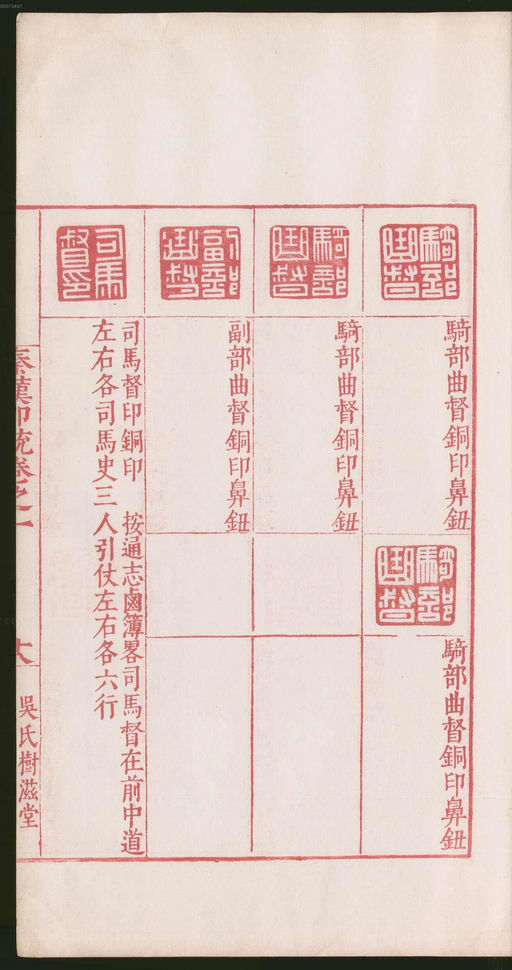 騎部曲督
騎部曲督銅印鼻鈕
騎部曲督
騎部曲督銅印鼻鈕
騎部曲督
騎部曲督銅印鼻鈕
副部曲督
副部曲督銅印鼻鈕
司馬督印
司馬督印銅印　按通志鹵簿畧司馬督在前中道
左右各司馬史三人引仗左右各六行
秦漢印統卷之一
吳氏樹滋堂
00073447